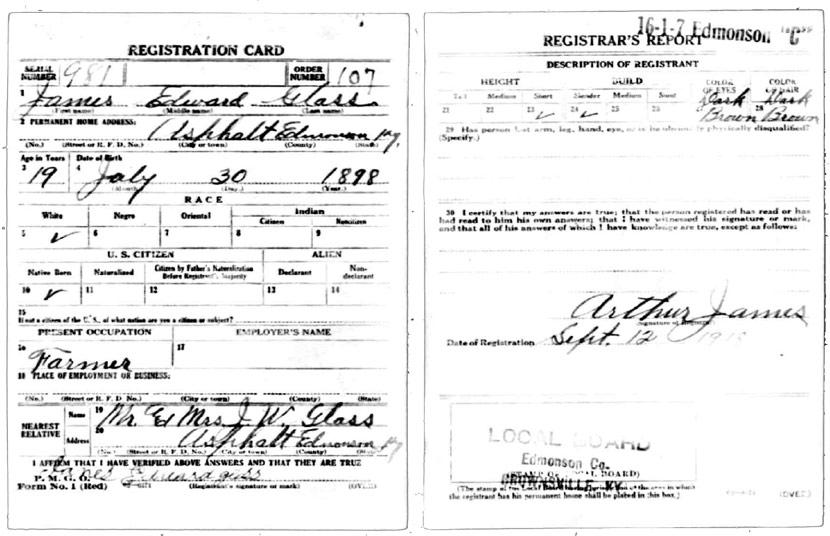 REGISTRATION CARD
SERIAL NUMBER 981 ORDER NUMBER 107
1 James Edward Glass
(First name) (Middle name) (Last name)
2 PERMANENT HOME ADDRESS:
Asphalt Edmonson Ky.
(No.) (Street or R. F. D. No.) (City or town) (County) (State)
Age in Years Date of Birth
3 19 4 July 30 1898
(Month.) (Day.) (Year.)
RACE
White Negro Oriental Indian
Citizen Noncitizen
5 ✓ 6 7 8 9
U. S. CITIZEN ALIEN
Native Born Naturalized Citizen by Father's Naturalization Before Registrant's Majority Declarant Non-declarant
10 ✓ 11 12 13 14
15
If not a citizen of the U. S., of what nation are you a citizen or subject?
PRESENT OCCUPATION EMPLOYER'S NAME
16 Farmer 17
18 PLACE OF EMPLOYMENT OR BUSINESS:
(No.) (Street or R. F. D. No.) (City or town) (County) (State)
NEAREST RELATIVE Name 19 Mr. Mrs. J. W. Glass
Address 20 Asphalt Edmonson Ky
(No.) (Street or R. F. D. No.) (City or town) (County) (State)
I AFFIRM THAT I HAVE VERIFIED ABOVE ANSWERS AND THAT THEY ARE TRUE
P. M. G. O.
Form No. 1 (Red) James Edward Glass
(Registrant's signature or mark) (OVER)
16-1-7 Edmonson C
REGISTRAR'S REPORT
DESCRIPTION OF REGISTRANT
HEIGHT BUILD COLOR OF EYES COLOR OF HAIR
Tall Medium Short Slender Medium Stout
21 22 23 ✓ 24 ✓ 25 26 27 Dark Brown 28 Dark Brown
29 Has person lost arm, leg, hand, eye, or is he obviously physically disqualified?
(Specify.)
30 I certify that my answers are true; that the person registered has read or has
had read to him his own answers; that I have witnessed his signature or mark,
and that all of his answers of which I have knowledge are true, except as follows:
Arthur James
(Signature of Registrar)
Date of Registration Sept. 12 1918
LOCAL BOARD
Edmonson Co.
(STAMP OF LOCAL BOARD)
BROWNSVILLE, KY.
(The stamp of the Local Board having jurisdiction of the area in which
the registrant has his permanent home shall be placed in this box.)
(OVER)